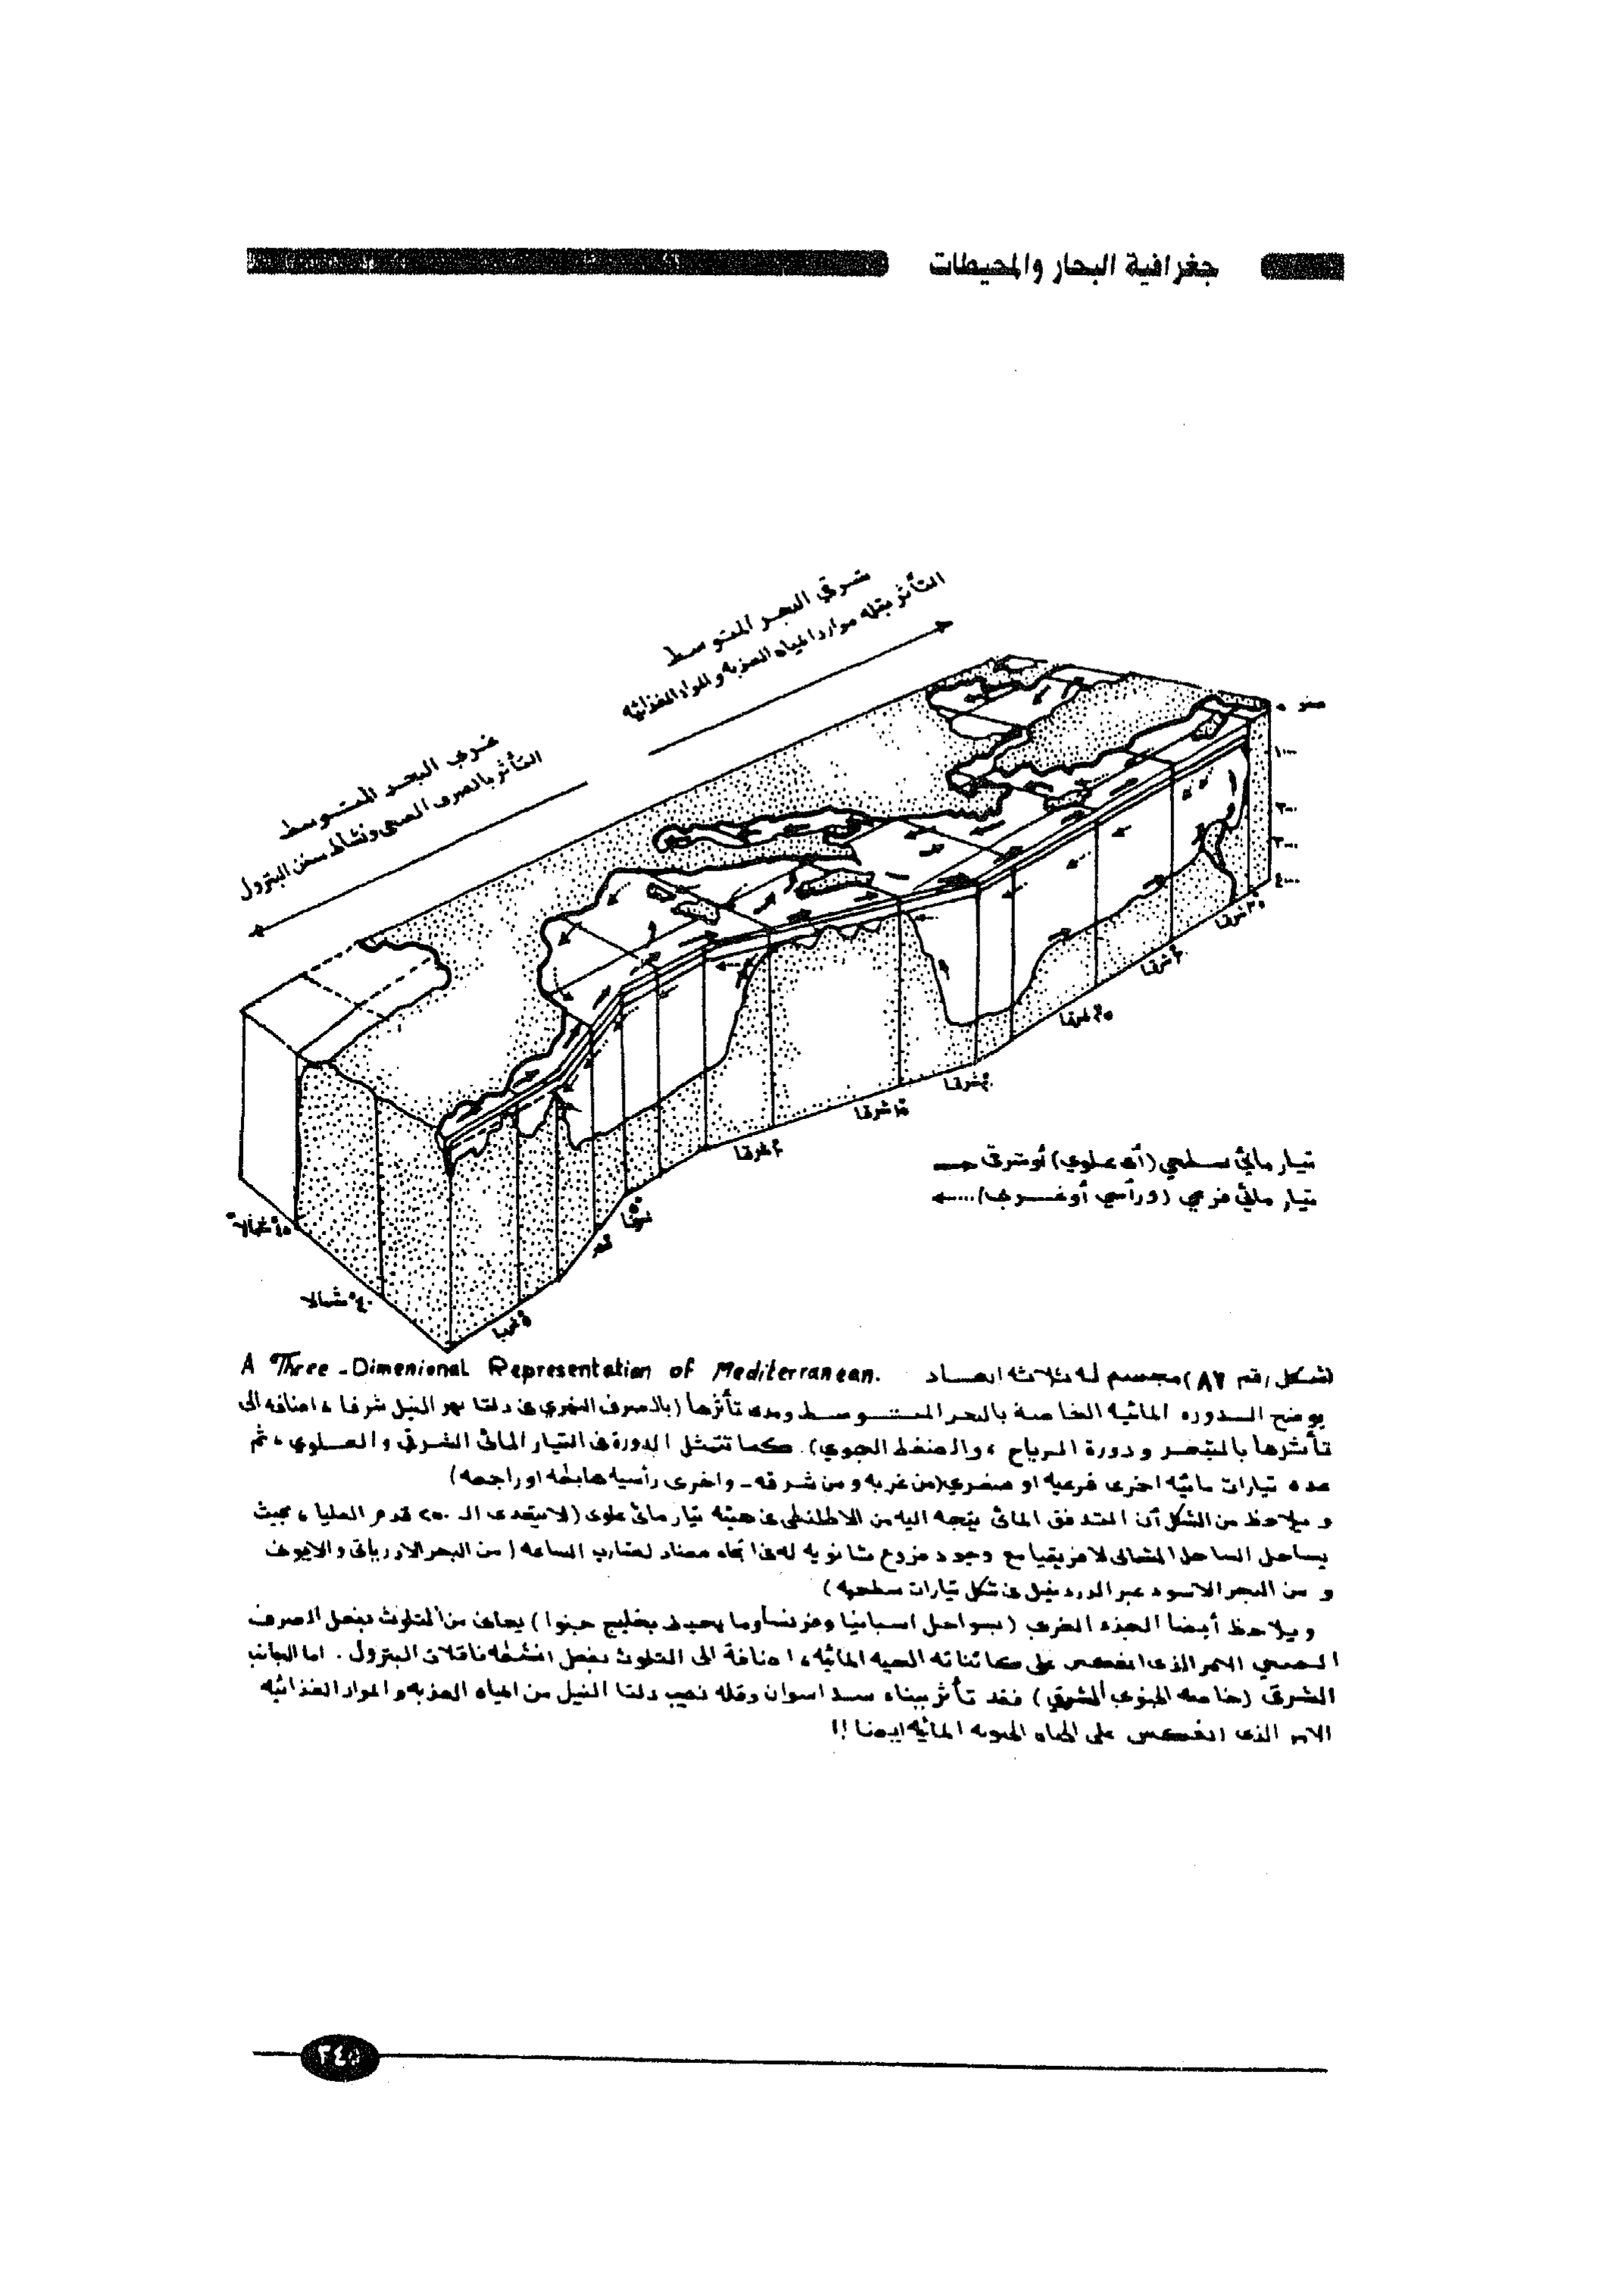 جغرافية البحار والمحيطات
شرقي البحر المتوسط
التأثر بقله موارد المياه العذبه والمواد الغذائيه
غربي البحر المتوسط
التأثر بالصرف الصحي ونشاط سفن البترول
صفر
١٠٠٠
٢٠٠٠
٣٠٠٠
٤٠٠٠
٣٥ شرقا
٣٠ شرقا
٢٥ شرقا
٢٠ شرقا
١٥ شرقا
١٠ شرقا
٥ شرقا
صفر
٥ غربا
٤٥° شمالا
٤٠° شمالا
تيار مائي سطحي (أى علوي) أو شرقى
تيار مائي فرعي (ورأسي أو غربى)
(شكل رقم ٨٧) مجسم له ثلاثة ابعاد A Three-Dimenional Representation of Mediterranean.
يوضح الدوره المائيه الخاصة بالبحر المتوسط ومدى تأثرها (بالصرف النهري فى دلتا نهر النيل شرقا، اضافه الى
تأثرها بالتبخر ودورة الرياح، والضغط الجوي). كما تتمثل الدورة فى التيار المائى الشرقى والعلوي، ثم
عده تيارات مائيه اخرى فرعيه او صغرى (من غربه ومن شرقه - واخرى رأسيه هابطه او راجعه)
و يلاحظ من الشكل أن التدفق المائى يتجه اليه من الاطلنطى فى هيئه تيار مائى علوى (لا يتعدى الـ ٢٠٠ قدم العليا، بحيث
يساحل الساحل الشمالى لافريقيا مع وجود فروع ثانويه له فى اتجاه مضاد لعقارب الساعه (من البحر الادرياتى والايونى
و من البحر الاسود عبر الدردنيل فى شكل تيارات سطحيه)
ويلاحظ أيضا الجزء الغربى (بسواحل اسبانيا وفرنسا وما يحيط بخليج جنوا) يعانى من التلوث بفعل الصرف
الصحي الامر الذى انعكس على كائناته الحيه المائيه، اضافة الى التلوث بفعل انشطه ناقلات البترول. اما الجانب
الشرقى (خاصه الجنوبى الشرقي) فقد تأثر ببناء سد اسوان وقله نصيب دلتا النيل من المياه العذبه والمواد الغذائيه
الامر الذى انعكس على الحياه الحيويه المائيه ايضا !!
٢٤٥